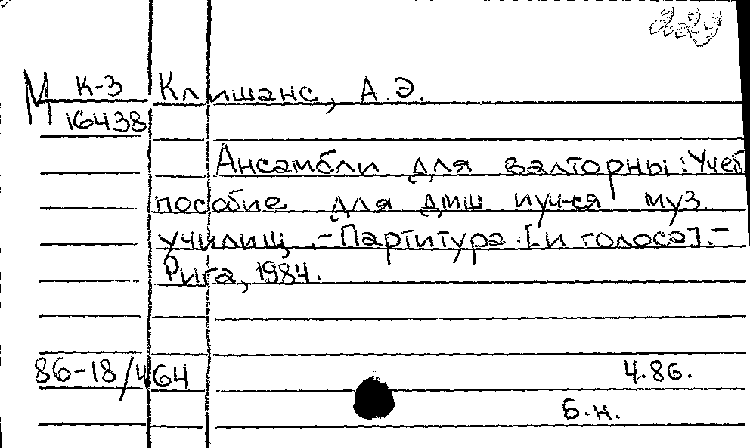 229
М К-3 Клишанс, А.Э.
16438
Ансамбли для валторны: Учеб
пособие для дмш и уч-ся муз.
училищ. - Партитура [и голоса]. -
Рига, 1984.
86-18/464 4.86.
б.н.